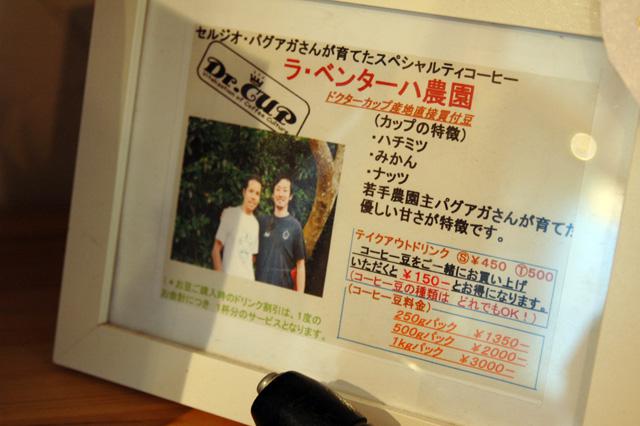 セルジオ・バグアガさんが育てたスペシャルティコーヒー
Dr.CUP
ラ・ベンターハ農園
ドクターカップ産地直接買付豆
(カップの特徴)
・ハチミツ
・みかん
・ナッツ
若手農園主バグアガさんが育てた
優しい甘さが特徴です。
テイクアウトドリンク Ⓢ¥450 Ⓣ500
コーヒー豆をご一緒にお買い上げ
いただくと ¥150― とお得になります。
(コーヒー豆の種類は どれでもOK!)
(コーヒー豆料金)
250gパック ¥1350―
500gパック ¥2000―
1kgパック ¥3000―
※お豆ご購入時のドリンク割引は、1度の
お会計につき、1杯分のサービスとなります。